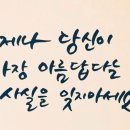 제나 당신이
가장 아름답다는
사실을 잊지마세요